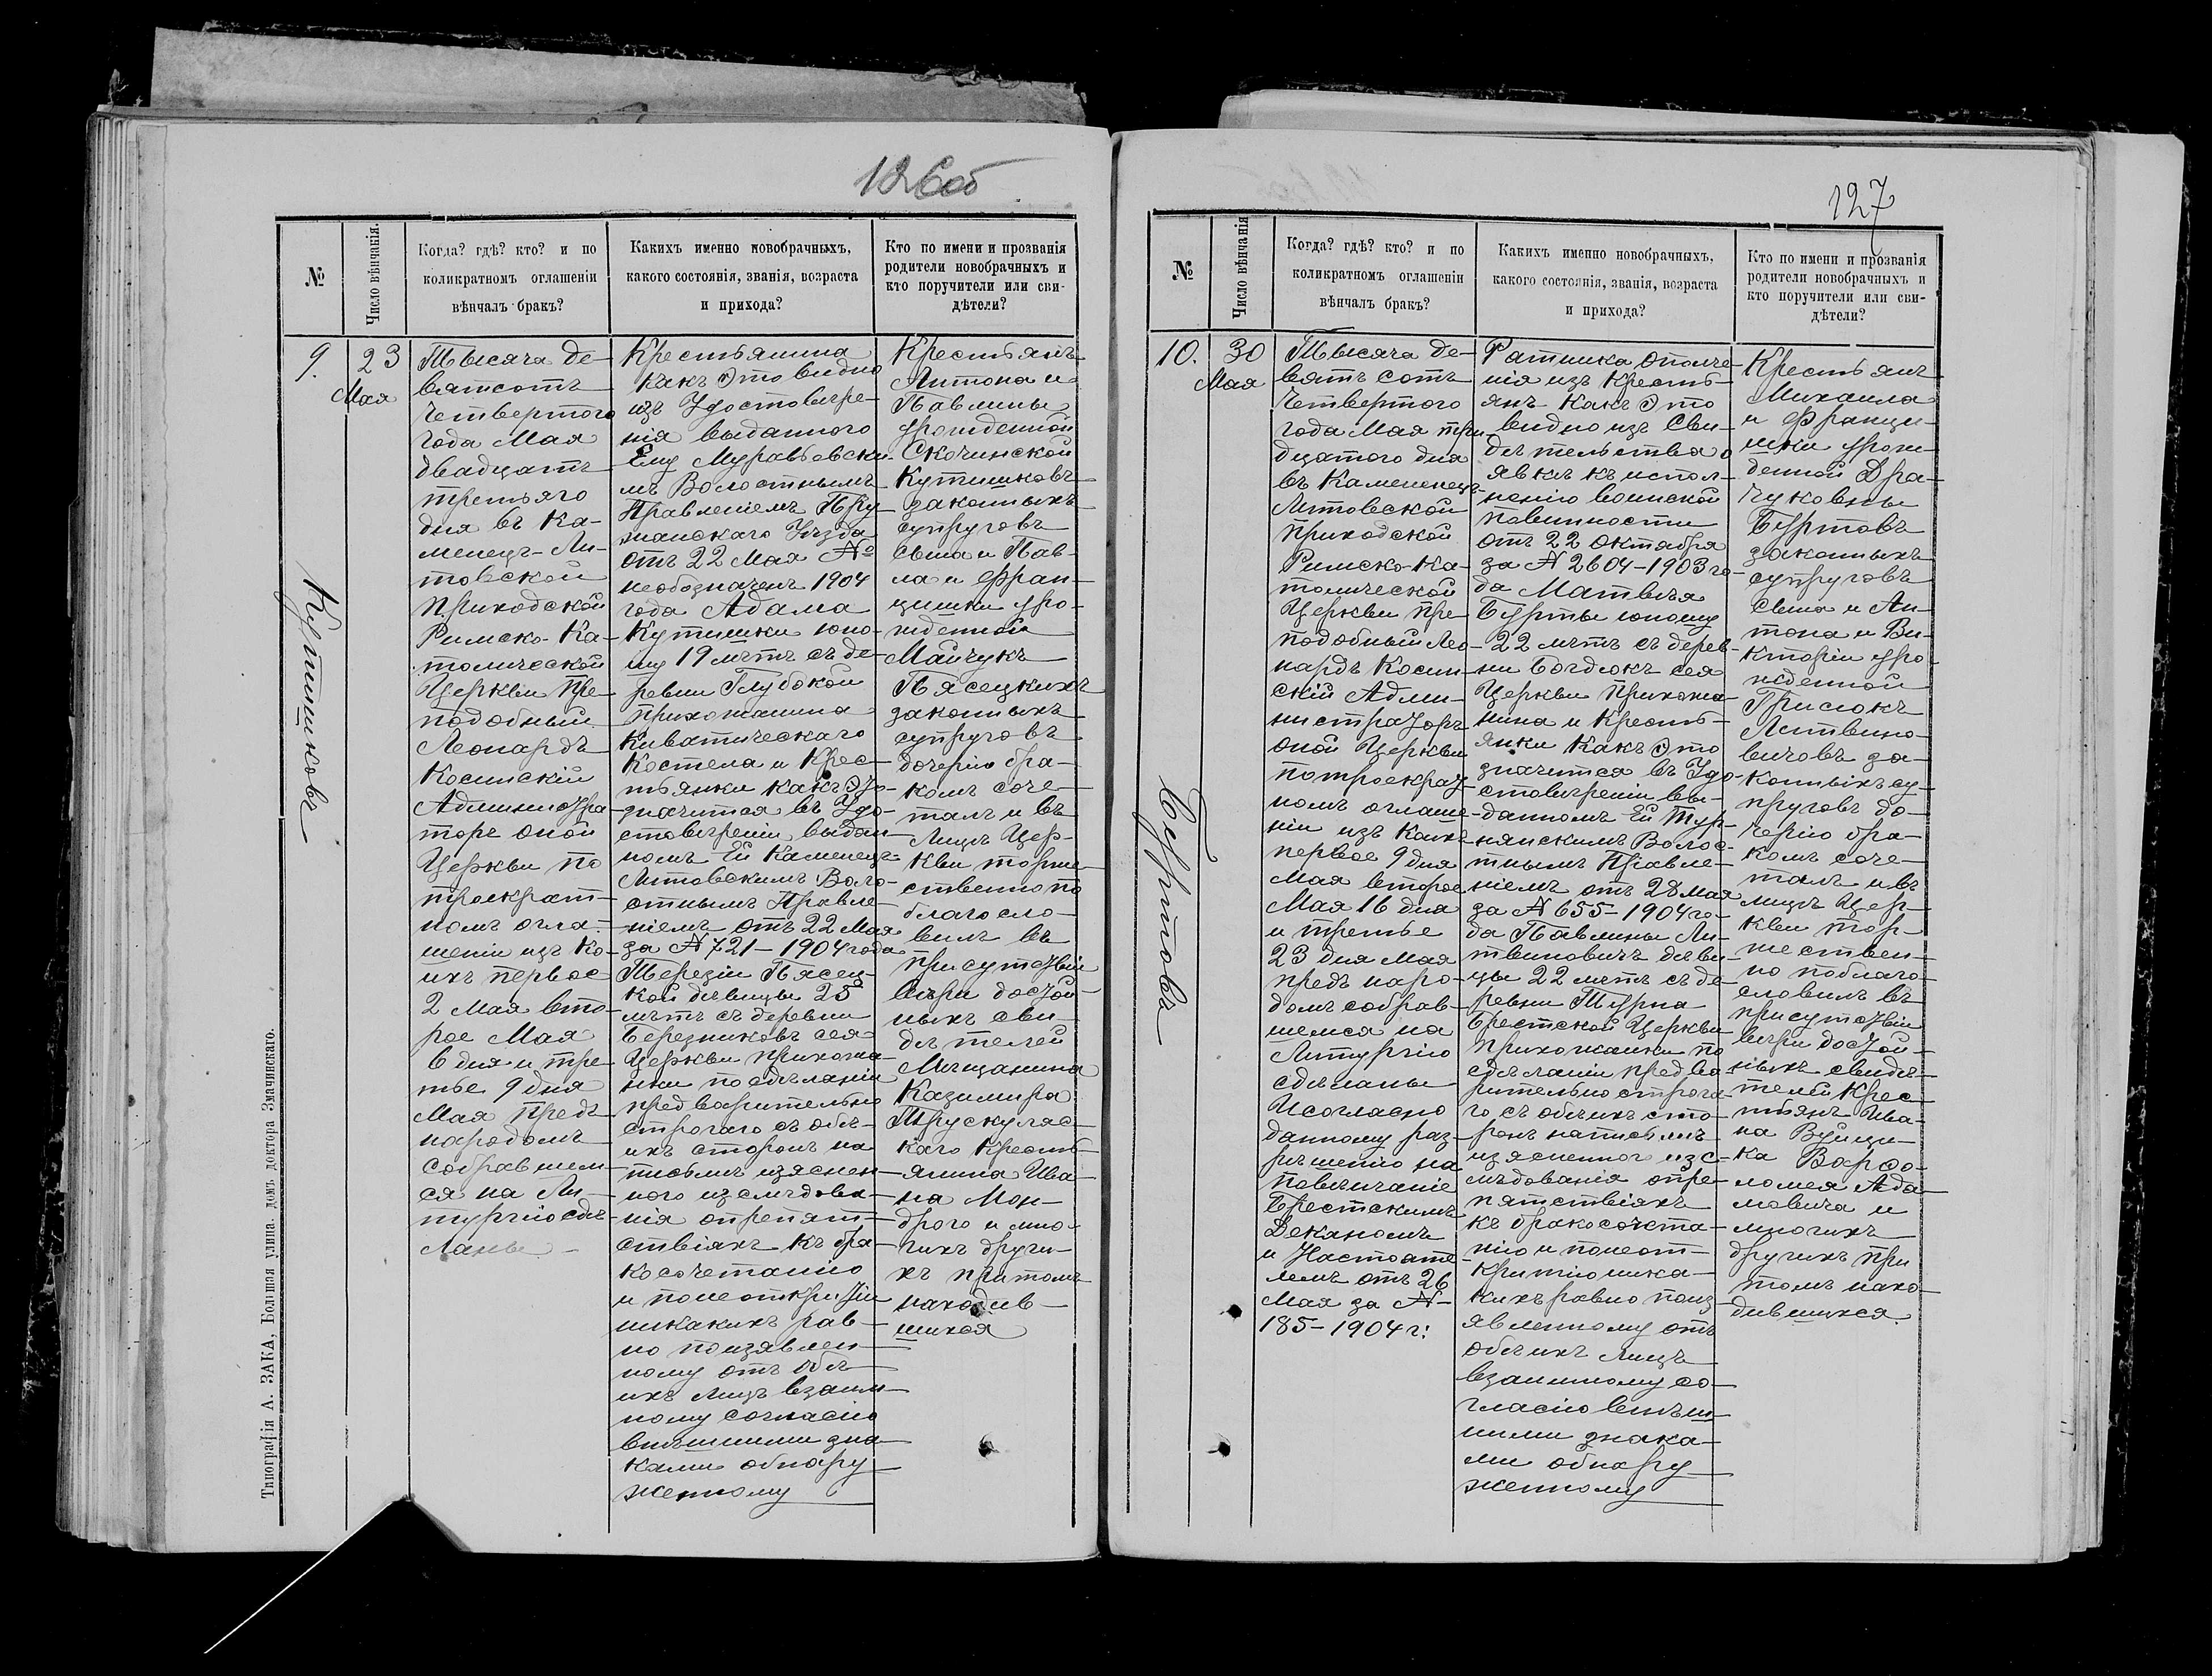 126об
№
Число вѣнчанія.
Когда? гдѣ? кто? и по
коликратномъ оглашеніи
вѣнчалъ бракъ?
Какихъ именно новобрачныхъ,
какого состоянія, званія, возраста
и прихода?
Кто по имени и прозванія
родители новобрачныхъ и
кто поручители или сви-
дѣтели?
9.
23
Мая
Кутишковъ
Тысяча де-
вятсотъ
Четвертого
года Мая
двадцать
третьяго
дня въ Ка-
менецъ-Ли-
товской
Приходской
Римско-Ка-
толической
Церкви Пре
подобный
Леонардъ
Косинскій
Администра-
торъ оной
Церкви по
троекрат-
номъ огла-
шеніи изъ Ко-
ихъ первое
2 Мая вто-
рое Мая
6 дня и тре
тье 9 дня
Мая предъ
народомъ
собравшем-
ся на Ли-
тургію сдѣ-
ланы -
Крестьянина
какъ это видно
изъ Удостовѣре-
нія выданного
Ему Муравьевски-
мъ Волостнымъ
Правленіемъ Пру-
жанскаго Уѣзда
отъ 22 Мая №
необозначенъ 1904
года Адама
Кутишки юно-
шу 19 лѣтъ съ де-
ревни Глубокой
прихожанина
Киватическаго
Костела и Крес-
тьянки какъ это
значится въ Удо-
стовѣреніи выдан
номъ Ей Каменецъ
Литовскимъ Воло-
стнымъ Правле-
ніемъ отъ 22 Мая
за № 721 - 1904 года
Терезіи Пясец-
кой дѣвицы 25
лѣтъ съ деревни
Березниковъ сея
Церкви прихожа-
нки по сдѣланіи
предварительно
строгаго съ обѣ-
ихъ сторонъ на
письмѣ изяснен-
ного изслѣдова-
нія опрепят-
ствіяхъ къ бра-
косочетанію
и понеоткрытіи
никакихъ рав-
но поизявлен-
ному отъ обѣ-
ихъ лицъ взаим-
ному согласію
внѣшними зна
ками обнару
женному
Крестьянъ
Антона и
Павлины
урожденной
Скочинской
Кутишковъ
законныхъ
супруговъ
сына и Пав-
ла и Фран-
цишки уро-
жденной
Майчукъ
Пясецкихъ
законныхъ
супруговъ
дочерію бра-
комъ соче-
талъ и въ
лицѣ Цер-
кви торже
ственно по
благосло-
вилъ въ
присутствіи
вѣры достой-
ныхъ сви-
дѣтелей
Мѣщанина
Казимира
Трускуляс-
каго Кресть-
янина Ива-
на Мон-
дрого и мно-
гихъ други-
хъ притомъ
находив-
шихся
Типографія А. ЗАКА, Большая улица, домъ доктора Змачинскаго.
127
№
Число вѣнчанія
Когда? гдѣ? кто? и по
коликратномъ оглашеніи
вѣнчалъ бракъ?
Какихъ именно новобрачныхъ,
какого состоянія, званія, возраста
и прихода?
Кто по имени и прозванія
родители новобрачныхъ и
кто поручители или сви-
дѣтели?
10.
30
Мая
Буртовъ
Тысяча де-
вять сотъ
Четвертого
года Мая три-
дцатого дня
въ Каменецъ-
Литовской
Приходской
Римско-Ка-
толической
Церкви Пре-
подобный Лео-
нардъ Косин-
скій Адми-
нистраторъ
оной Церкви
потроекрат
номъ оглаше-
ніи изъ Коихъ
первое 9 дня
Мая второе
Мая 16 дня
и третье
23 дня Мая
предъ наро-
домъ собрав-
шемся на
Литургію
сдѣланы
И согласно
данному раз-
рѣшенію на
повѣнчаніе
Брестскимъ
Деканомъ
и Настояте
лемъ отъ 26
Мая за №
185 - 1904 г:
Ратника ополче-
нія изъ Кресть-
янъ Какъ это
видно изъ Сви-
дѣтельства о
явкѣ къ испол-
ненію воинской
повинности
отъ 22 Октября
за № 2604 - 1903 го-
да Матвѣя
Бурты юношу
22 лѣтъ съ дерев-
ни Богдюкъ сея
Церкви Прихожа
нина и Кресть-
янки Какъ это
значится въ Удо-
стовѣреніи вы-
данномъ Ей Тур-
нянскимъ Волос-
тнымъ Правле-
ніемъ отъ 28 Мая
за № 655 - 1904 го-
да Павлины Ли-
твиновичъ дѣви-
цы 22 лѣтъ съ де-
ревни Турна
Брестской Церкви
Прихожанки по
сдѣланіи предва-
рительно строга-
го съ обѣихъ сто-
ронъ написьмѣ
изясненого изс-
лѣдованія опре-
пятствіяхъ
къ бракосочета-
нію и понеот-
крытію ника-
кихъ равно поиз-
явленному отъ
обѣихъ лицъ
взаимному со-
гласію внѣш-
ними знака-
ми обнару
женному
Крестьянъ
Михаила
и Франци-
шки урож-
денной Дра-
чуковны
Буртовъ
законныхъ
супруговъ
сына и Ан-
тона и Ви-
кторіи уро-
жденной
Грисюкъ
Литвино-
вичовъ за-
конныхъ су-
пруговъ до-
черію бра-
комъ соче-
талъ и въ
лицѣ Цер-
кви тор-
жествен-
но поблаго-
словилъ въ
присутствіи
вѣры достой-
ныхъ свидѣ-
телей Крес-
тьянъ Ива-
на Вуйци-
ка Варфо-
ломея Ада-
мовича и
многихъ
другихъ при
томъ нахо-
дившихся.